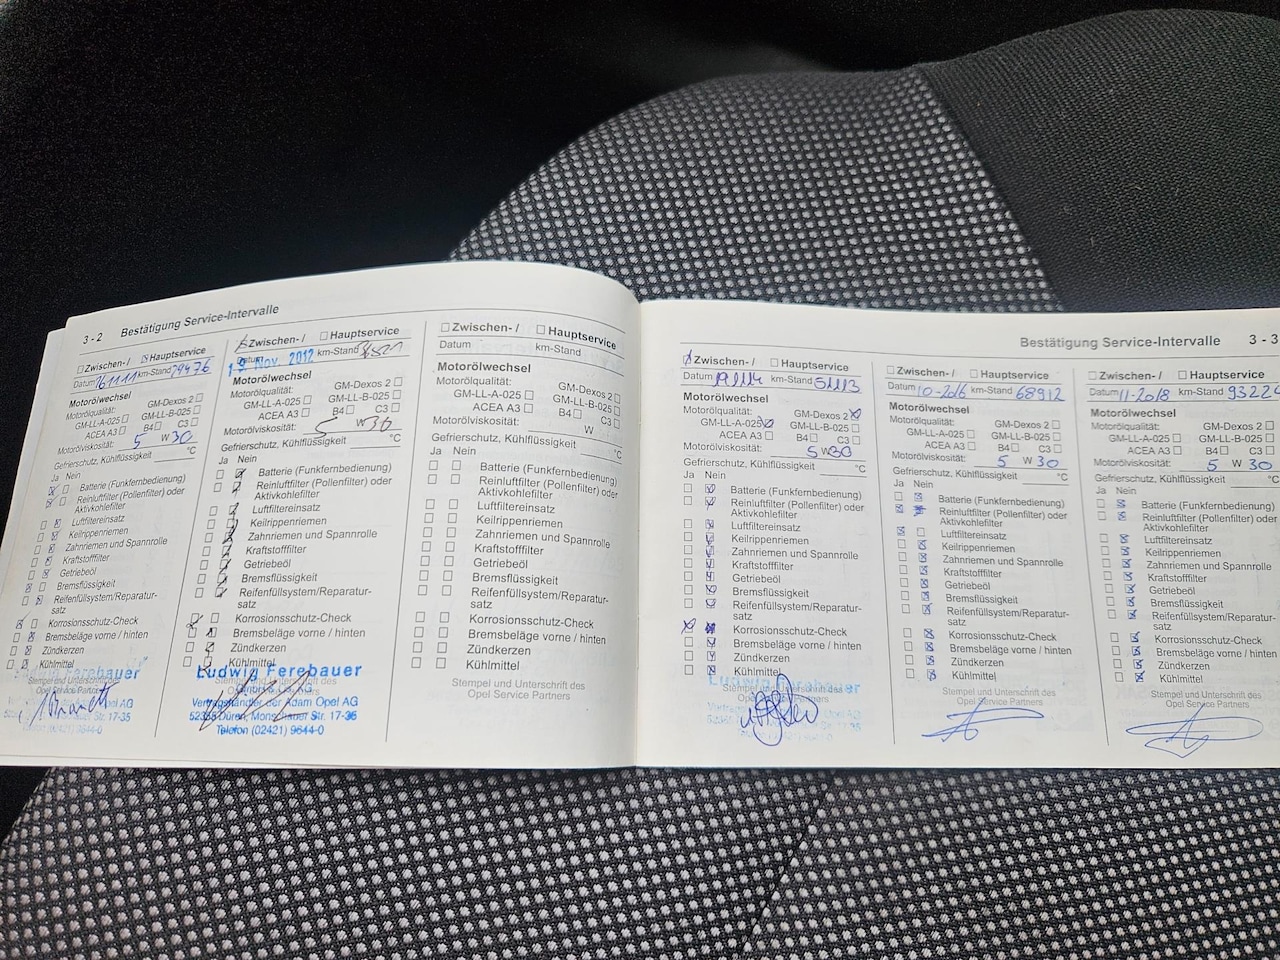 3 - 2 Bestätigung Service-Intervalle
Zwischen- / Hauptservice
Datum km-Stand 29476
Motorölwechsel
Motorölqualität: GM-Dexos 2
GM-LL-A-025 GM-LL-B-025
ACEA A3 B4 C3
Motorölviskosität: 5 W 30
Gefrierschutz, Kühlflüssigkeit °C
Ja Nein
Batterie (Funkfernbedienung)
Reinluftfilter (Pollenfilter) oder
Aktivkohlefilter
Luftfiltereinsatz
Keilrippenriemen
Zahnriemen und Spannrolle
Kraftstofffilter
Getriebeöl
Bremsflüssigkeit
Reifenfüllsystem/Reparatur-
satz
Korrosionsschutz-Check
Bremsbeläge vorne / hinten
Zündkerzen
Kühlmittel
Stempel und Unterschrift des
Opel Service Partners
Zwischen- / Hauptservice
Datum 19. Nov. 2012 km-Stand
Motorölwechsel
Motorölqualität: GM-Dexos 2
GM-LL-A-025 GM-LL-B-025
ACEA A3 B4 C3
Motorölviskosität: 5 W 30
Gefrierschutz, Kühlflüssigkeit °C
Ja Nein
Batterie (Funkfernbedienung)
Reinluftfilter (Pollenfilter) oder
Aktivkohlefilter
Luftfiltereinsatz
Keilrippenriemen
Zahnriemen und Spannrolle
Kraftstofffilter
Getriebeöl
Bremsflüssigkeit
Reifenfüllsystem/Reparatur-
satz
Korrosionsschutz-Check
Bremsbeläge vorne / hinten
Zündkerzen
Kühlmittel
Ludwig Ferebauer
GmbH & Co. KG
Vertragshändler der Adam Opel AG
Düren, Monschauer Str. 17-35
Telefon (02421) 9644-0
Zwischen- / Hauptservice
Datum km-Stand
Motorölwechsel
Motorölqualität: GM-Dexos 2
GM-LL-A-025 GM-LL-B-025
ACEA A3 B4 C3
Motorölviskosität: W
Gefrierschutz, Kühlflüssigkeit °C
Ja Nein
Batterie (Funkfernbedienung)
Reinluftfilter (Pollenfilter) oder
Aktivkohlefilter
Luftfiltereinsatz
Keilrippenriemen
Zahnriemen und Spannrolle
Kraftstofffilter
Getriebeöl
Bremsflüssigkeit
Reifenfüllsystem/Reparatur-
satz
Korrosionsschutz-Check
Bremsbeläge vorne / hinten
Zündkerzen
Kühlmittel
Stempel und Unterschrift des
Opel Service Partners
Bestätigung Service-Intervalle 3 - 3
Zwischen- / Hauptservice
Datum km-Stand 51113
Motorölwechsel
Motorölqualität: GM-Dexos 2
GM-LL-A-025 GM-LL-B-025
ACEA A3 B4 C3
Motorölviskosität: 5 W 30
Gefrierschutz, Kühlflüssigkeit °C
Ja Nein
Batterie (Funkfernbedienung)
Reinluftfilter (Pollenfilter) oder
Aktivkohlefilter
Luftfiltereinsatz
Keilrippenriemen
Zahnriemen und Spannrolle
Kraftstofffilter
Getriebeöl
Bremsflüssigkeit
Reifenfüllsystem/Reparatur-
satz
Korrosionsschutz-Check
Bremsbeläge vorne / hinten
Zündkerzen
Kühlmittel
Stempel und Unterschrift des
Opel Service Partners
Zwischen- / Hauptservice
Datum 10-2016 km-Stand 68912
Motorölwechsel
Motorölqualität: GM-Dexos 2
GM-LL-A-025 GM-LL-B-025
ACEA A3 B4 C3
Motorölviskosität: 5 W 30
Gefrierschutz, Kühlflüssigkeit °C
Ja Nein
Batterie (Funkfernbedienung)
Reinluftfilter (Pollenfilter) oder
Aktivkohlefilter
Luftfiltereinsatz
Keilrippenriemen
Zahnriemen und Spannrolle
Kraftstofffilter
Getriebeöl
Bremsflüssigkeit
Reifenfüllsystem/Reparatur-
satz
Korrosionsschutz-Check
Bremsbeläge vorne / hinten
Zündkerzen
Kühlmittel
Stempel und Unterschrift des
Opel Service Partners
Zwischen- / Hauptservice
Datum 11-2018 km-Stand
Motorölwechsel
Motorölqualität: GM-Dexos 2
GM-LL-A-025 GM-LL-B-025
ACEA A3 B4 C3
Motorölviskosität: 5 W 30
Gefrierschutz, Kühlflüssigkeit °C
Ja Nein
Batterie (Funkfernbedienung)
Reinluftfilter (Pollenfilter) oder
Aktivkohlefilter
Luftfiltereinsatz
Keilrippenriemen
Zahnriemen und Spannrolle
Kraftstofffilter
Getriebeöl
Bremsflüssigkeit
Reifenfüllsystem/Reparatur-
satz
Korrosionsschutz-Check
Bremsbeläge vorne / hinten
Zündkerzen
Kühlmittel
Stempel und Unterschrift des
Opel Service Partners